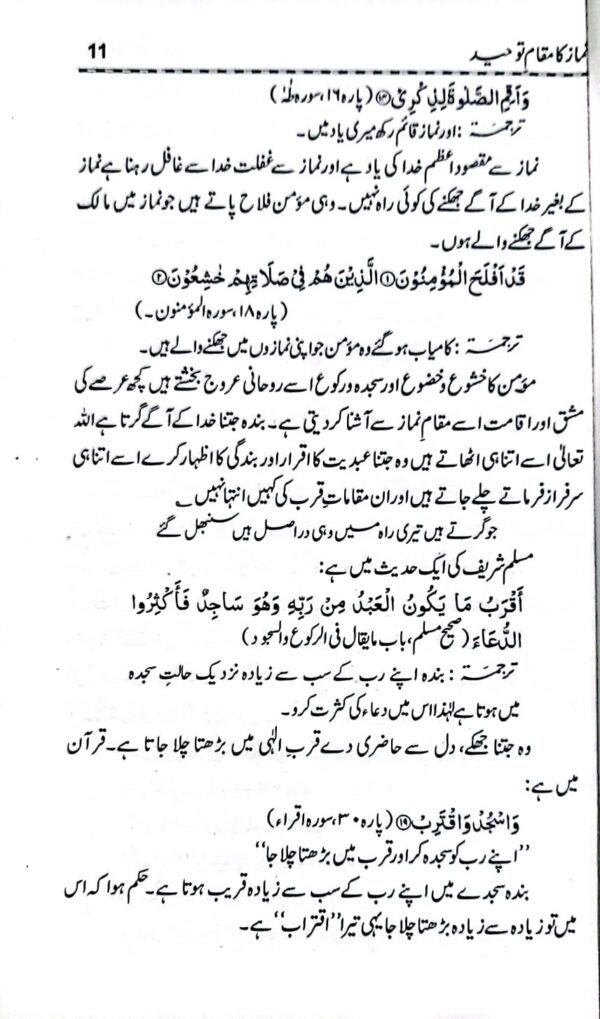 نماز کا مقامِ توحید 11
وَاَقِمِ الصَّلٰوةَ لِذِكْرِیْ ﴿۱۴﴾ (پارہ ۱۶، سورہ طٰہٰ)
ترجمہ: اور نماز قائم رکھ میری یاد میں۔
نماز سے مقصودِ اعظم خدا کی یاد ہے اور نماز سے غفلت خدا سے غافل رہنا ہے نماز
کے بغیر خدا کے آگے جھکنے کی کوئی راہ نہیں۔ وہی مؤمن فلاح پاتے ہیں جو نماز میں مالک
کے آگے جھکنے والے ہوں۔
قَدْ اَفْلَحَ الْمُؤْمِنُوْنَ ﴿۱﴾ الَّذِیْنَ هُمْ فِیْ صَلَاتِهِمْ خٰشِعُوْنَ ﴿۲﴾
(پارہ ۱۸، سورہ المؤمنون۔)
ترجمہ: کامیاب ہو گئے وہ مؤمن جو اپنی نمازوں میں جھکنے والے ہیں۔
مؤمن کا خشوع و خضوع اور سجدہ و رکوع اسے روحانی عروج بخشتے ہیں کچھ عرصے کی
مشق اور اقامت اسے مقامِ نماز سے آشنا کر دیتی ہے۔ بندہ جتنا خدا کے آگے گرتا ہے اللہ
تعالیٰ اسے اتنا ہی اٹھاتے ہیں وہ جتنا عبدیت کا اقرار اور بندگی کا اظہار کرے اسے اتنا ہی
سرفراز فرماتے چلے جاتے ہیں اور ان مقاماتِ قرب کی کہیں انتہا نہیں ؎
جو گرتے ہیں تیری راہ میں وہی دراصل ہیں سنبھل گئے
مسلم شریف کی ایک حدیث میں ہے:
أَقْرَبُ مَا يَكُونُ الْعَبْدُ مِنْ رَبِّهِ وَهُوَ سَاجِدٌ فَأَكْثِرُوا
الدُّعَاءَ (صحیح مسلم، باب مایقال فی الرکوع والسجود)
ترجمہ: بندہ اپنے رب کے سب سے زیادہ نزدیک حالتِ سجدہ
میں ہوتا ہے لہٰذا اس میں دعاء کی کثرت کرو۔
وہ جتنا جھکے، دل سے حاضری دے قربِ الٰہی میں بڑھتا چلا جاتا ہے۔ قرآن
میں ہے:
وَاسْجُدْ وَاقْتَرِبْ ﴿۱۹﴾ (پارہ ۳۰، سورہ اقراء)
”اپنے رب کو سجدہ کر اور قرب میں بڑھتا چلا جا“
بندہ سجدے میں اپنے رب کے سب سے زیادہ قریب ہوتا ہے۔ حکم ہوا کہ اس
میں تو زیادہ سے زیادہ بڑھتا چلا جا یہی تیرا ”اقتراب“ ہے۔